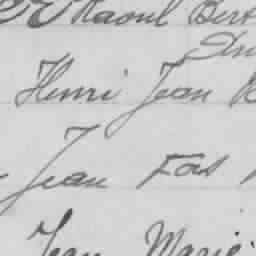 Raoul Bert
Henri Jean
Jean Fois
Jean Marie